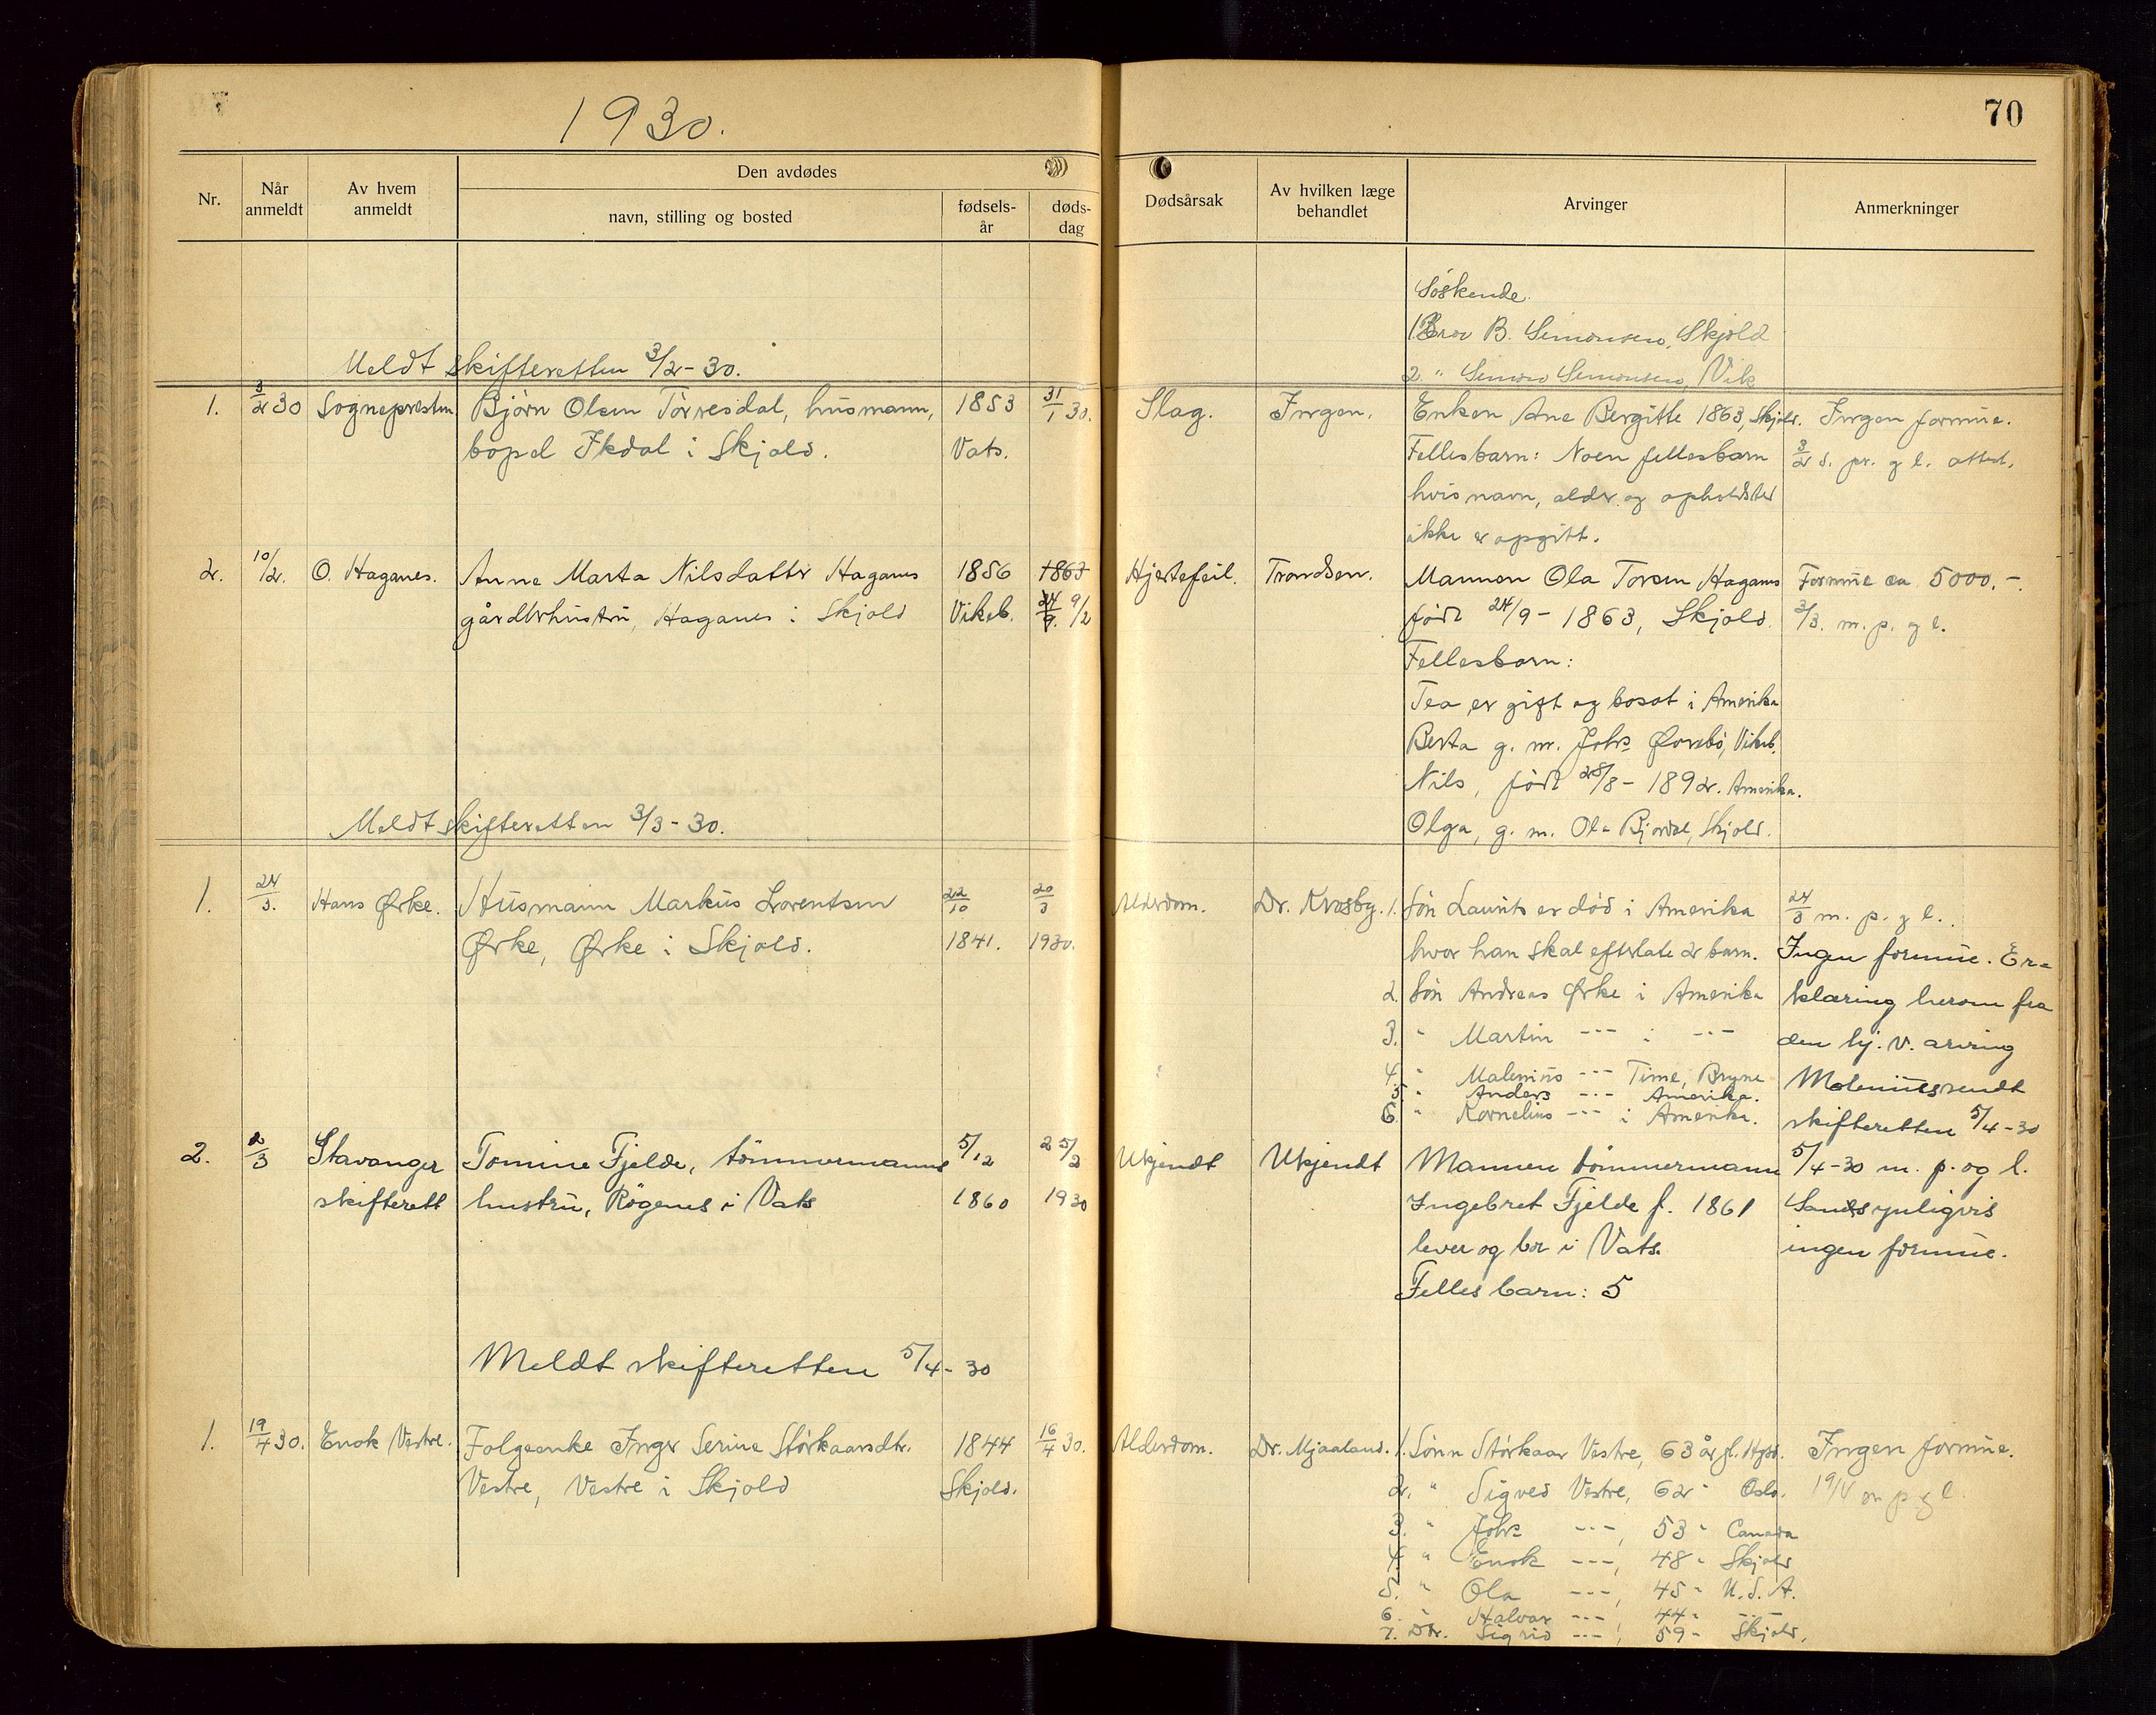 1930.
70
Nr.
Når anmeldt
Av hvem anmeldt
Den avdødes
navn, stilling og bosted
fødsels-år
døds-dag
Dødsårsak
Av hvilken læge behandlet
Arvinger
Anmerkninger
Søskende.
1. Bror B. Simonsen, Skjold
2. " Simon Simonsen, Vik
Meldt skifteretten 3/2-30.
1. 3/2 30 Sognepresten Bjørn Olsen Törresdal, husmann, 1853 31/1 30. Slag. Ingen. Enken Ane Bergitte 1863, Skjold. Ingen formue.
bopel Ikdal i Skjold. Vats. Fellesbarn: Noen fellesbarn 3/2 s. pr. og l. attest.
hvis navn, alder og opholdsted
ikke er opgitt.
2. 10/2. O. Haganes. Anne Marta Nilsdatter Haganes 1856 1863 Hjertefeil. Trondsen. Mannen Ola Torsen Haganes Formue ca 5000.-.
gårdbrhustru, Haganes i Skjold Vikeb. 24/9. 9/2 født 24/9-1863, Skjold. 3/3. m. p. og l.
Fellesbarn:
Tea er gift og bosat i Amerika
Berta g. m. Johs Øvrebö, Vikeb.
Nils, født 28/8-1892. Amerika.
Olga, g. m. Ola Bjordal, Skjold.
Meldt skifteretten 3/3-30.
1. 24/3. Hans Ørke. Husmann Markus Lorentsen 22/10 20/3 Alderdom. Dr. Krosby. 1. Søn Laurits er død i Amerika 24/3 m. p. og l.
Ørke, Ørke i Skjold. 1841. 1930. hvor han skal efterlate 2 barn. Ingen formue. Er-
2. Søn Andreas Ørke i Amerika klæring herom fra
3. " Martin --- i --- den hj. v. arving
4. " Malenius --- Time, Bryne Malenius sendt
5. " Anders --- Amerika.
6. " Kornelius --- i Amerika. skifteretten 5/4-30
2. 2/3 Stavanger Tomine Fjelde, tömmermanns 5/12 25/2 Ukjendt Ukjendt Mannen tömmermann 5/4-30 m. p. og l.
skifterett hustru, Rögenes i Vats 1860 1930 Ingebret Fjelde f. 1861 Sandsynligvis
lever og bor i Vats. ingen formue.
Felles barn: 5
Meldt skifteretten 5/4-30
1. 19/4 30. Enok Vestre. Folgeenke Inger Serine Störkaarsdtr. 1844 16/4 30. Alderdom. Dr. Mjaaland. 1. Sönn Störkaar Vestre, 63 år gl. Ingen formue.
Vestre, Vestre i Skjold Skjold. 2. " Sigved Vestre, 62 " Oslo. 19/4 m p og l.
3. " Johs ---, 53 " Canada
4. " Enok ---, 48 " Skjold
5. " Ola ---, 45 " U.S.A.
6. " Halvar ---, 44 " ---
7. Dtr. Sigrid ---, 59 " Skjold.